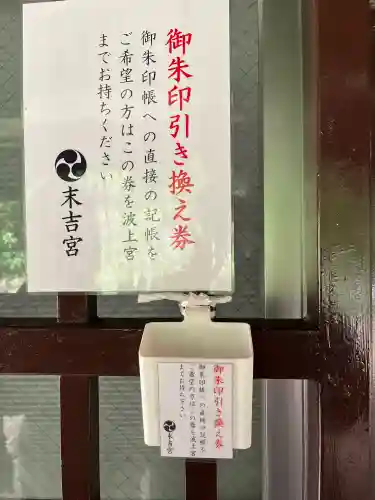 御朱印引き換え券
御朱印帳への直接の記帳を
ご希望の方はこの券を波上宮
までお持ちください
末吉宮
御朱印引き換え券
御朱印帳への直接の記帳を
ご希望の方はこの券を波上宮
までお持ちください
末吉宮